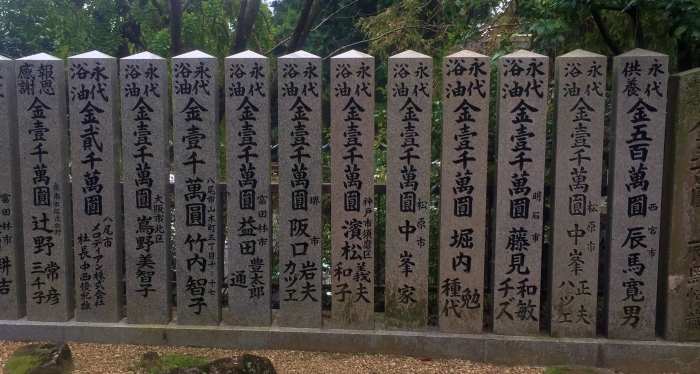 永代
供養
金五百萬圓
西宮市
辰馬寛男
永代
浴油
金壹千萬圓
松原市
中峯正夫
ハツエ
永代
浴油
金壹千萬圓
明石市
藤見和敏
チズ
永代
浴油
金壹千萬圓
堀内勉
種代
永代
浴油
金壹千萬圓
松原市
中峯家
永代
浴油
金壹千萬圓
神戸市須磨区
濱松義夫
和子
永代
浴油
金壹千萬圓
堺市
阪口岩夫
カツエ
永代
浴油
金壹千萬圓
富田林市
益田豊太郎
通
永代
浴油
金壹千萬圓
竹内智子
永代
浴油
金壹千萬圓
大阪市北区
嶌野美智子
永代
浴油
金貳千萬圓
八尾市
社長中西
報恩
感謝
金壹千萬圓
辻野常彦
三千子
富田林市